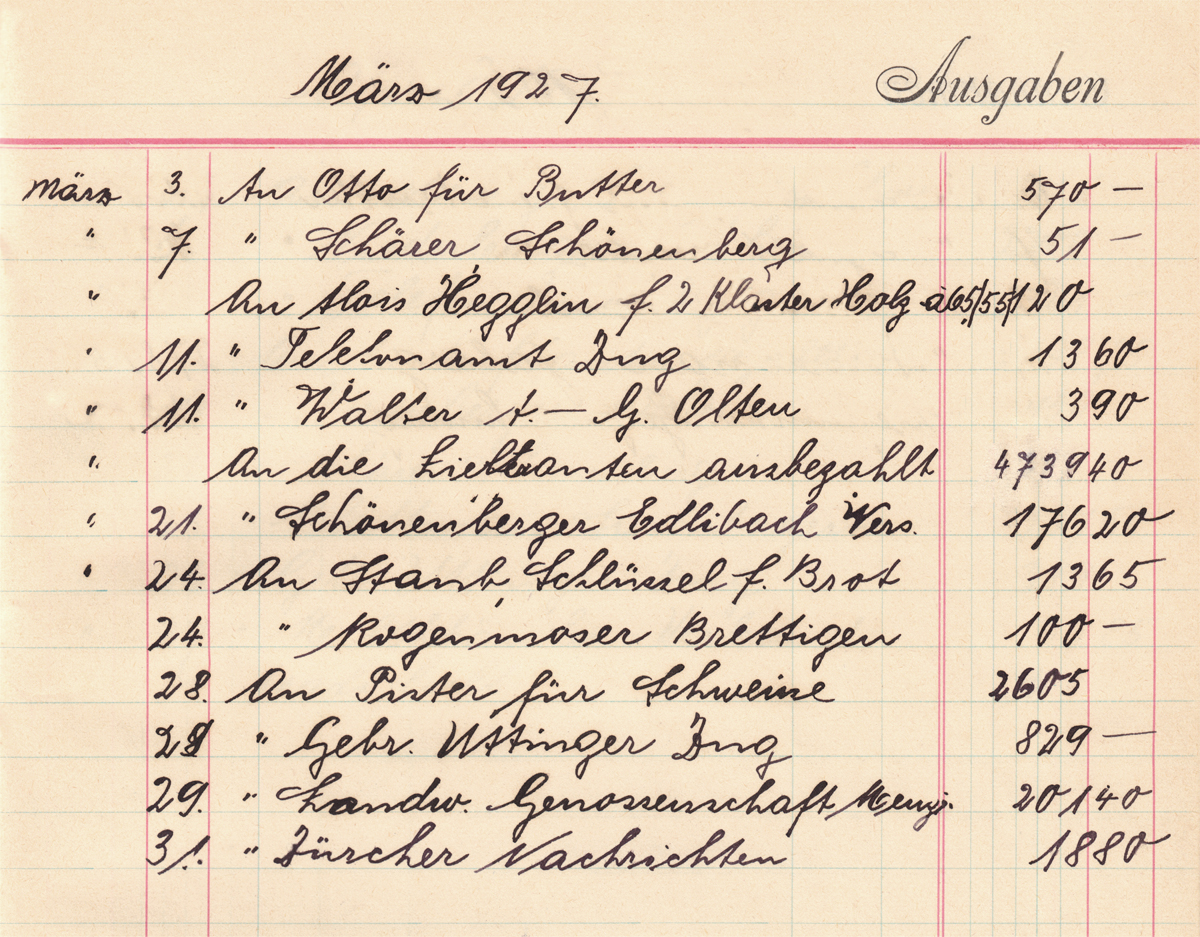 März 1927. Ausgaben
März 3. An Otto für Butter 570 —
" 7. " Schärer Schönenberg 51 —
" An Alois Hegglin f. 2 Klaster Holz à 65/55/ 120
" 11. " Telefonamt Zug 13 60
" 11. " Walter A. — G. Olten 3 90
" An die Lieferanten ausbezahlt 4739 40
" 21. " Schönenberger Edlibach Vers. 176 20
" 24. An Staub, Schlüssel f. Brot 13 65
24. " Rogenmoser Brettigen 100 —
28. An Pister für Schweine 2605
29 " Gebr. Uttinger Zug 829 —
29. " Landw. Genossenschaft Menzi. 201 40
31. " Zürcher Nachrichten 18 80